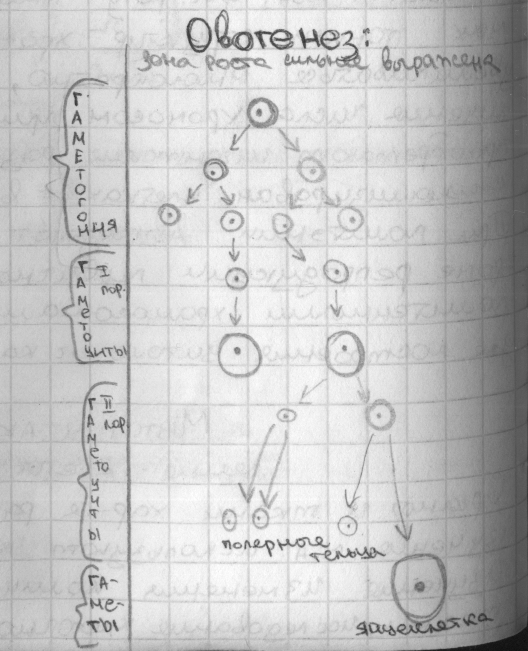 Овогенез:
зона роста сильнее выражена
ГАМЕТОГОНИЯ
ГАМЕТОЦИТЫ I пор.
ГАМЕТОЦИТЫ II пор
полерные
тельца
ГА-
МЕ-
ТЫ
яйцеклетка